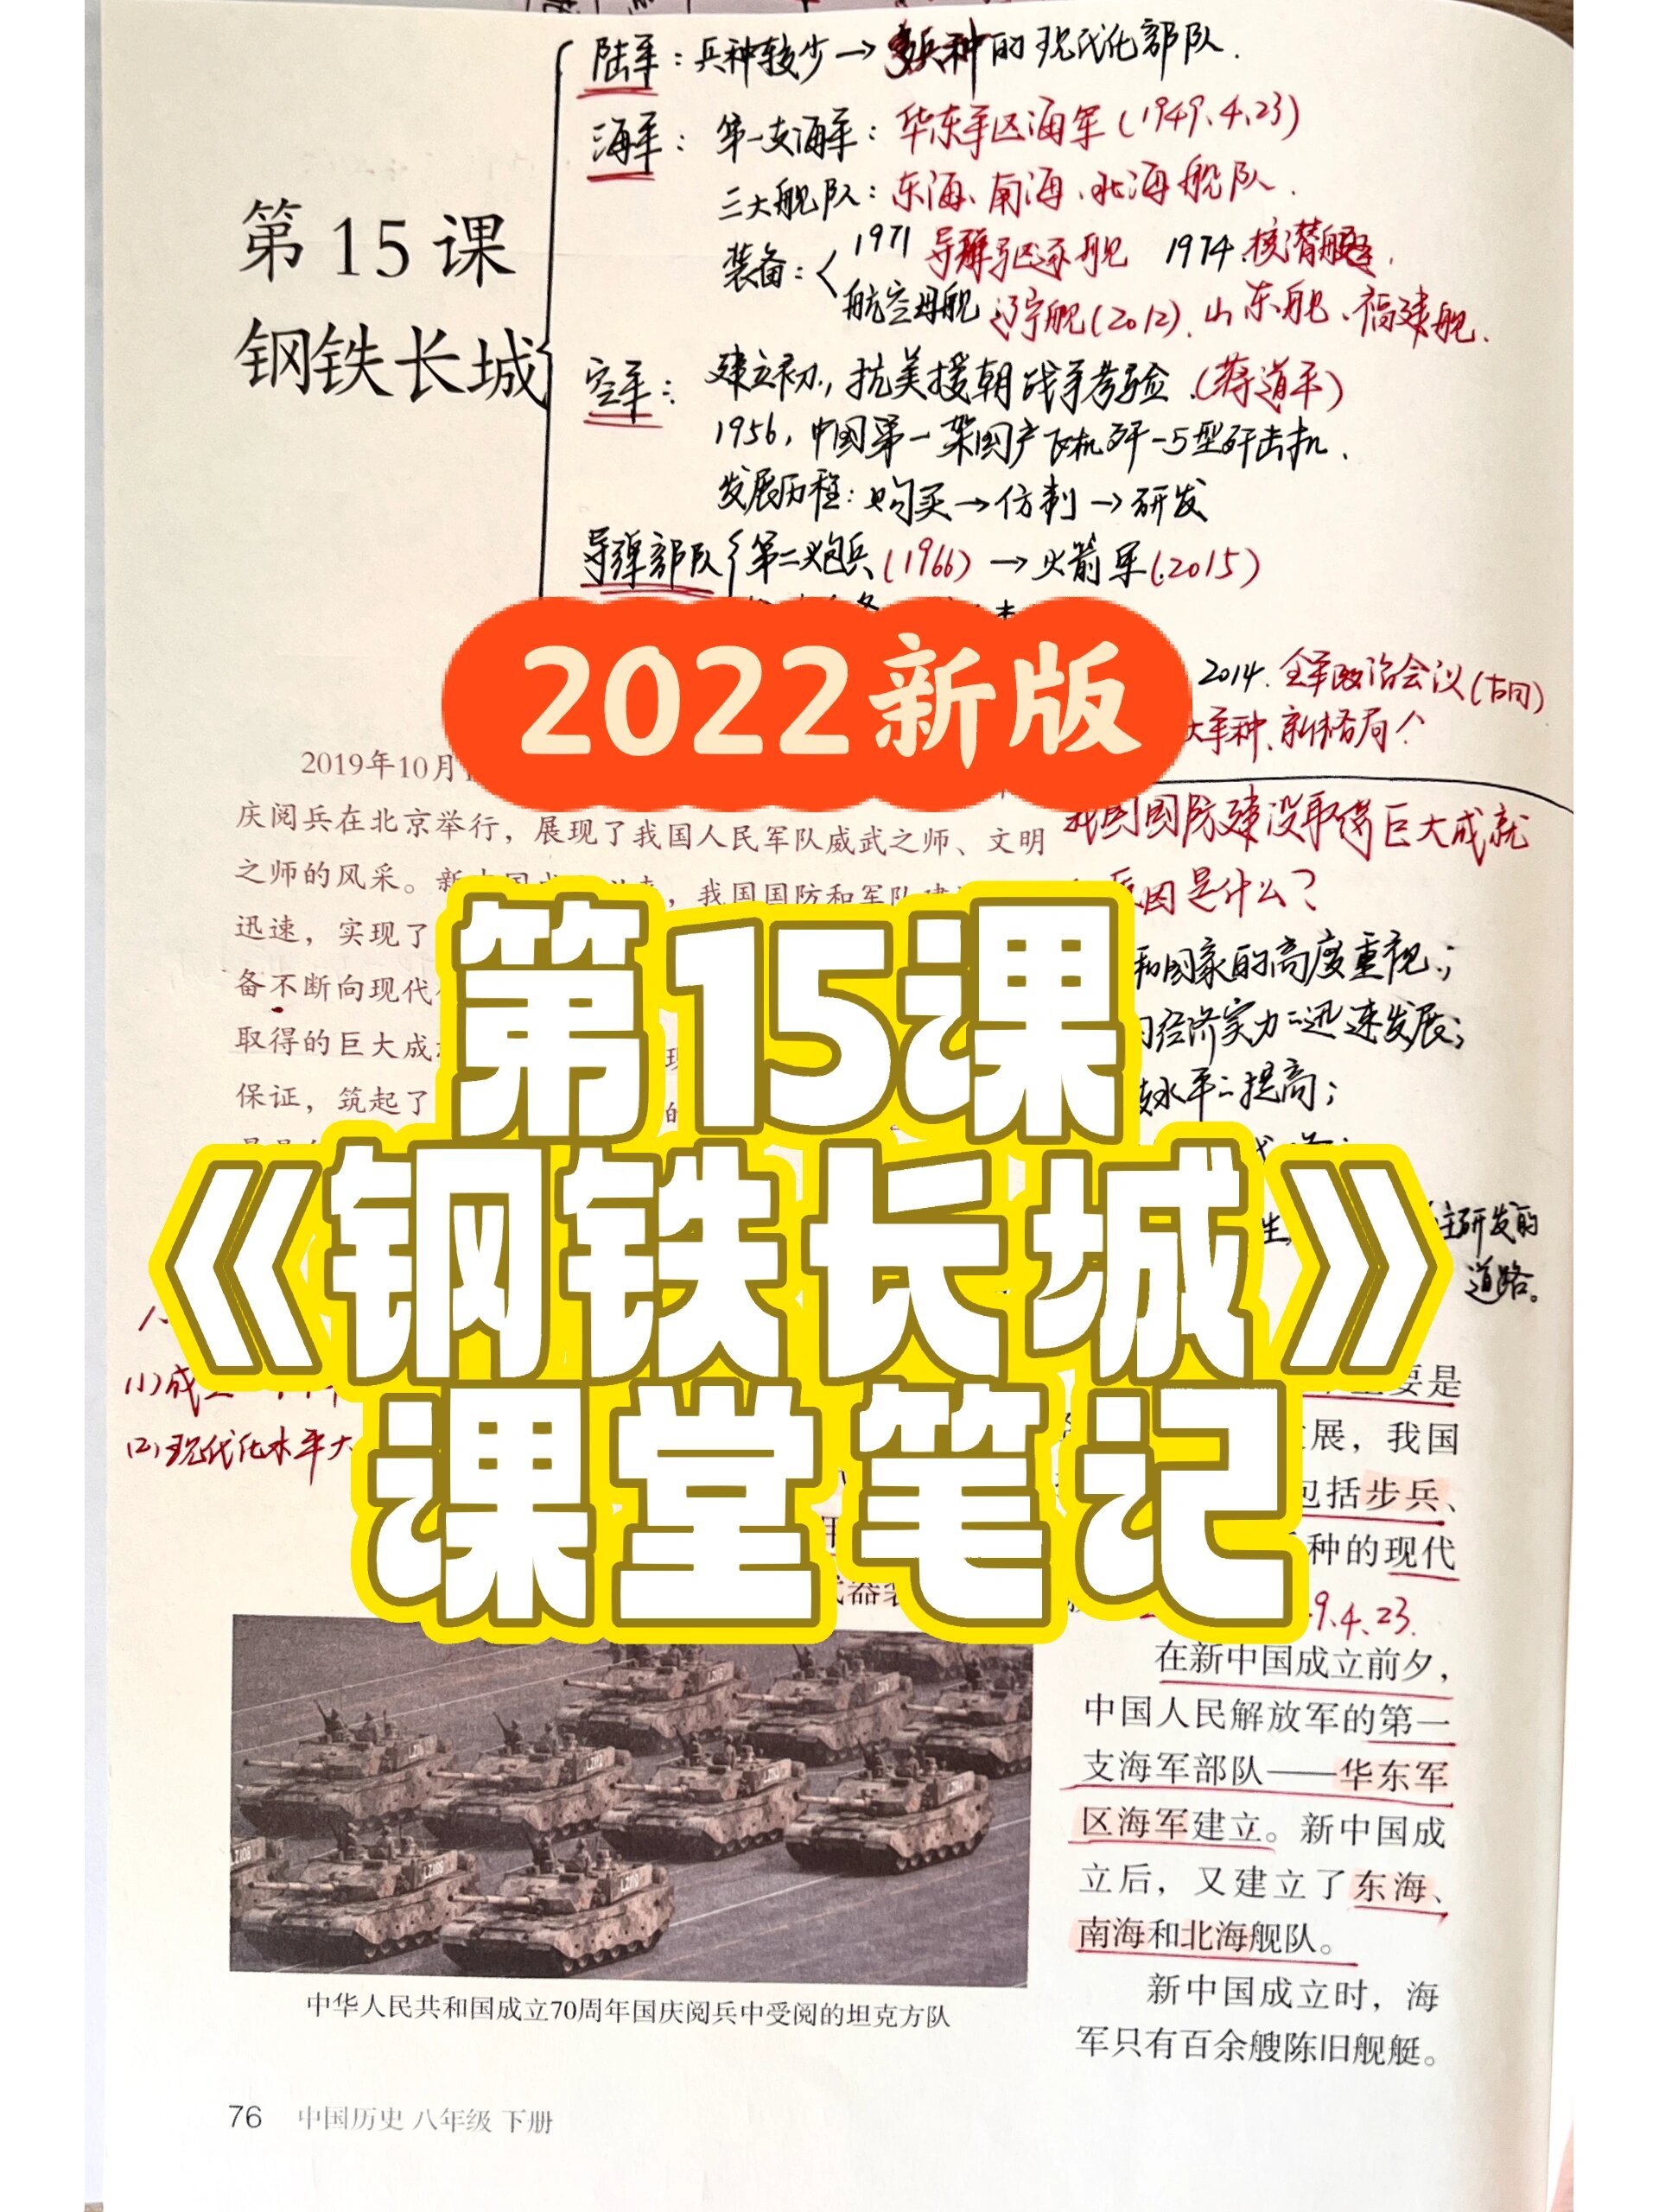 陆军：兵种较少→多兵种的现代化部队.
海军：第一支海军：华东军区海军(1949.4.23)
三大舰队：东海、南海、北海舰队.
装备：
1971 导弹驱逐舰 1974.核潜艇.
航空母舰 辽宁舰(2012).山东舰、福建舰.
第15课
钢铁长城
空军：建立初,抗美援朝战争考验.(蒋道平)
1956,中国第一架国产飞机歼-5型歼击机.
发展历程：购买→仿制→研发
导弹部队 第二炮兵(1966)→火箭军(2015)
2022新版
2014.全军政治会议(古田)
大军种、新格局个
2019年10月
庆阅兵在北京举行，展现了我国人民军队威武之师、文明
之师的风采。新中国成立以来，我国国防和军队建
迅速，实现了
备不断向现代
取得的巨大成
保证，筑起了
我国国防建设取得巨大成就
原因是什么?
和国家的高度重视;
经济实力=迅速发展;
水平=提高;
主研发的
道路。
第15课
《钢铁长城》
课堂笔记
(1)成
(2)现代化水平大
要是
展，我国
包括步兵、
种的现代
9.4.23.
在新中国成立前夕，
中国人民解放军的第一
支海军部队——华东军
区海军建立。新中国成
立后，又建立了东海、
南海和北海舰队。
新中国成立时，海
军只有百余艘陈旧舰艇。
中华人民共和国成立70周年国庆阅兵中受阅的坦克方队
76 中国历史 八年级 下册